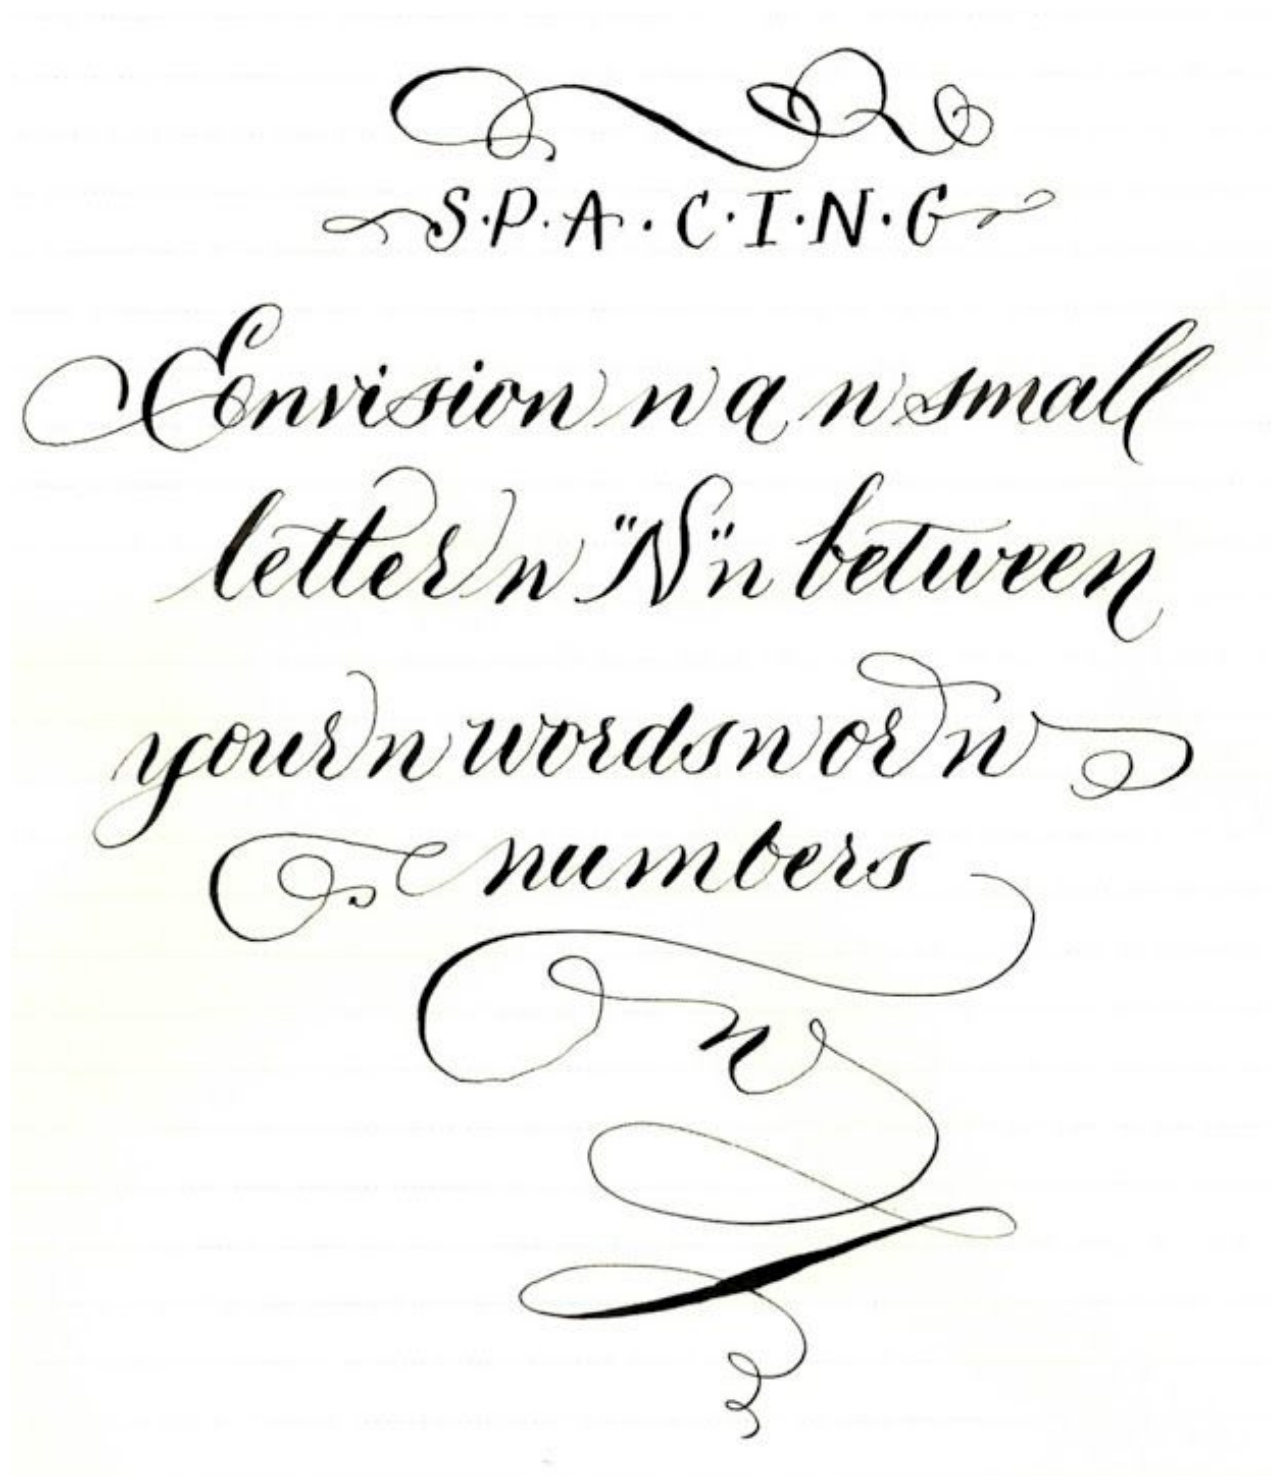 S·P·A·C·I·N·G
Envision n a n small
letter n "N" n between
your n words n or n
numbers
n